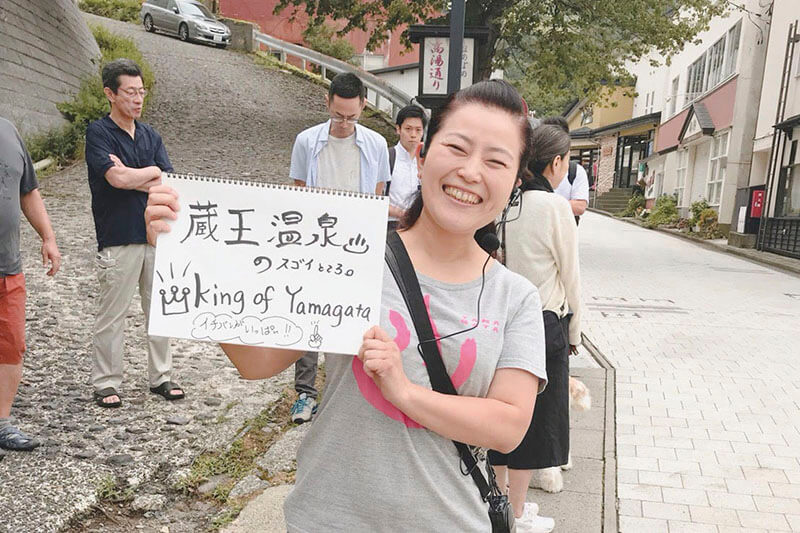 高湯通り
蔵王温泉♨
のスゴイところ。
King of Yamagata
イチバンがいっぱい!!